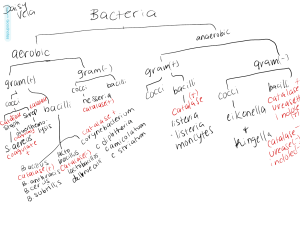 Daisy
Vela
Bacteria
aerobic
anaerobic
gram(+)
gram(-)
gram(+)
gram(-)
cocci
bacilli
cocci
bacilli
cocci
bacilli
cocci
catalase
staph
strep
S aureus
coagulase
catalase(+)
corynebacterium
c diptheria
c striatum
Bacillus
catalase(+)
B anthracis
B subtilis
lacto
bacillus
catalase(-)
lactobacillus
(+)
catalase
listeria
listeria
eikenella
+
kingella
catalase
urease
indole
catalase
urease
indole